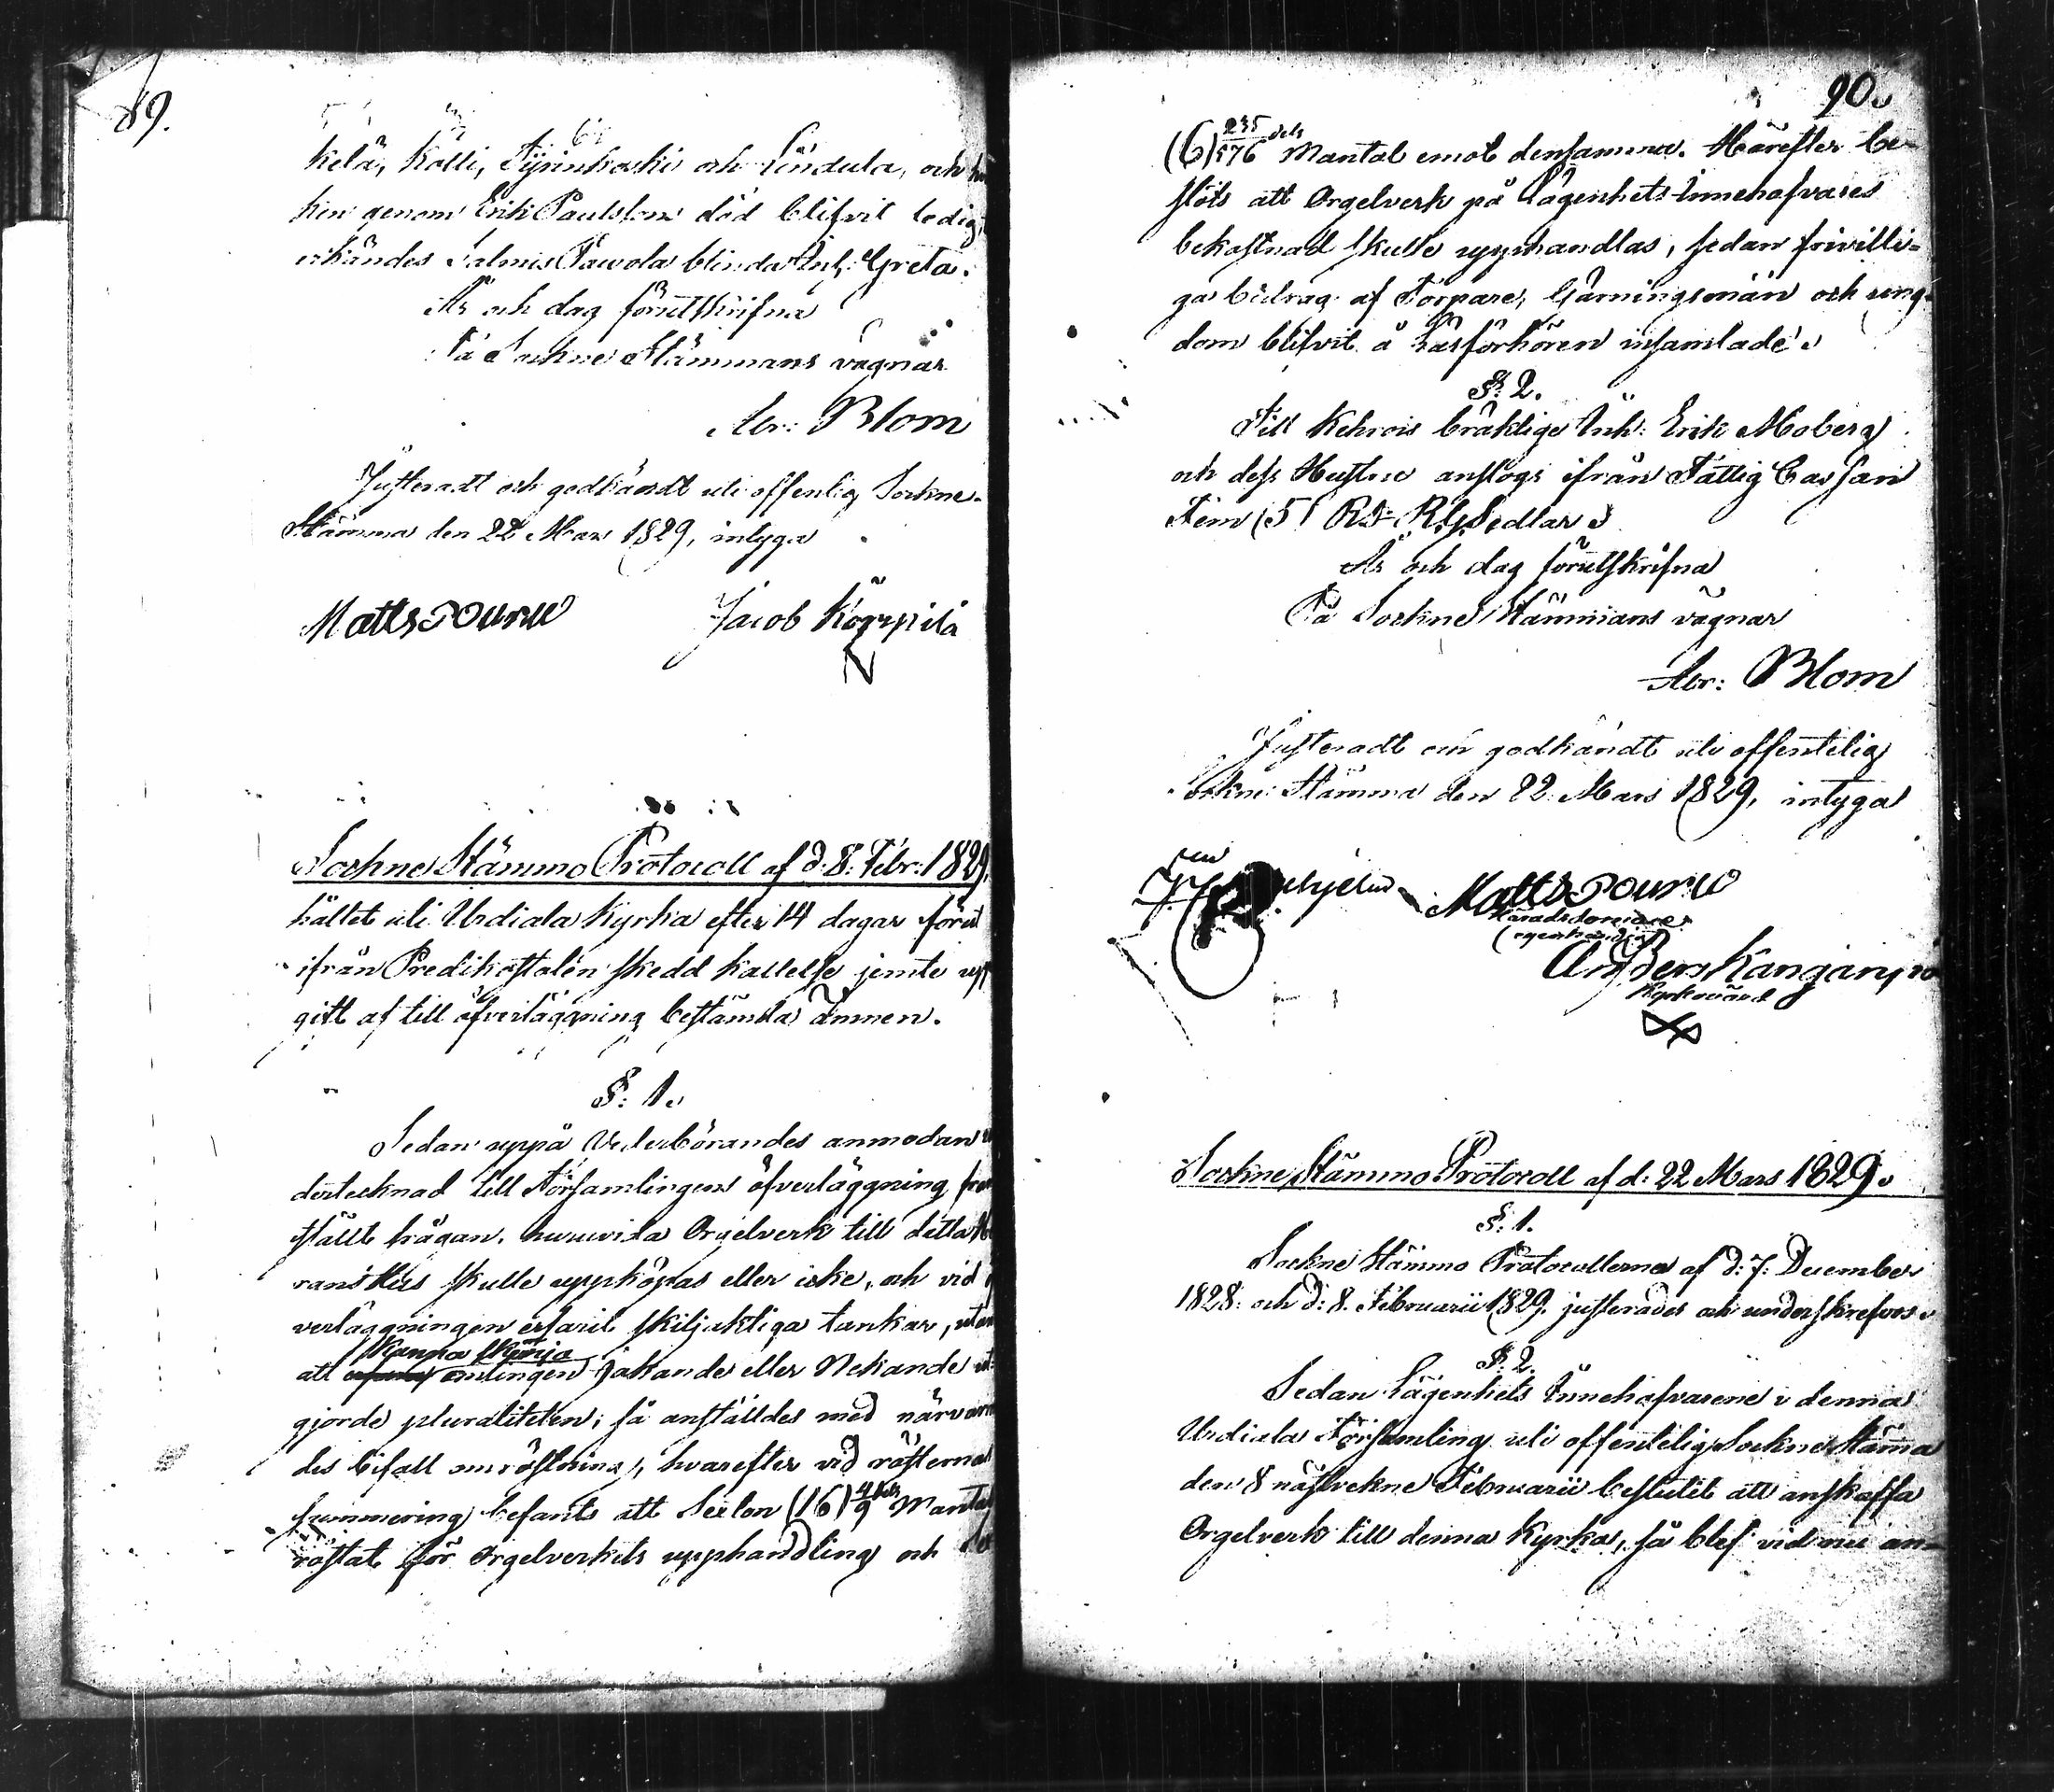 89.
kelä, Kölli, Tyrinkoski och Lindula, och
ken genom Erik Paulssons död blifvit ledig,
erkändes Salmis Pawola blinda Inh: Greta.
År och dag förutskrifna
På Sockne Stämmans vägnar
Abr: Blom
Justeradt och godkändt uti offentlig Sockne
Stämma den 22 Mars 1829, intyga
Matts Pouru Jacob Körpilä
Sockne Stämmo Protocoll af d: 8: Febr: 1829,
hållet uti Urdiala Kyrka efter 14 dagar förut
ifrån Predikostolen skedd kallelse jemte upp
gift af till öfverläggning bestämda ämnen.
§: 1.
Sedan uppå Vederbörandes anmodan
dertecknad till Församlingens öfverläggning
ställt frågan, huruvida Orgelverk till detta
rans Hus skulle uppköpas eller icke, och vid
verläggningen erfarit skiljaktiga tankar, utan
kunna skönja
att omtingen Jakande eller Nekande
gjorde pluraliteten; så anställdes med närvaran
des bifall omröstning, hvarefter vid rösternas
summering befants att Sexton (16) 4/9 dels Mantal
röstat för Orgelverkets upphandling och
90.
(6) 235/576 dels Mantal emot densamma. Härefter be-
slöts att Orgelverk på Lägenhets-Innehafvares
bekostnad skulle upphandlas, sedan frivilli-
ga bidrag af Torpare, Gärningsmän och ung-
dom blifvit å Läsförhören insamlade.
§: 2.
Till Kehrois bräklige Inh: Erik Moberg
och dess Hustru anslogs ifrån Fattig Cassan
Fem (5) Rd: Rg: Sedlar.
År och dag förutskrifna
På Sockne Stämmans vägnar
Abr: Blom
Justeradt och godkändt uti offentelig
Sockne Stämma den 22 Mars 1829, intyga
Matts Pouru
Häradsdomare
Anders Kangänpä
Kyrkovärd
Sockne Stämmo Protocoll af d: 22 Mars 1829.
§: 1.
Sockne Stämmo Protocollerna af d: 7: December
1828: och d: 8. Februarii 1829. justerades och underskrefvos.
§: 2.
Sedan Lägenhets Innehafvarene i denna
Urdiala Församling uti offentelig Sockne Stäma
den 8 nästvekne Februarii beslutit att anskaffa
Orgelverk till denna Kyrka, så blef vid nu an-